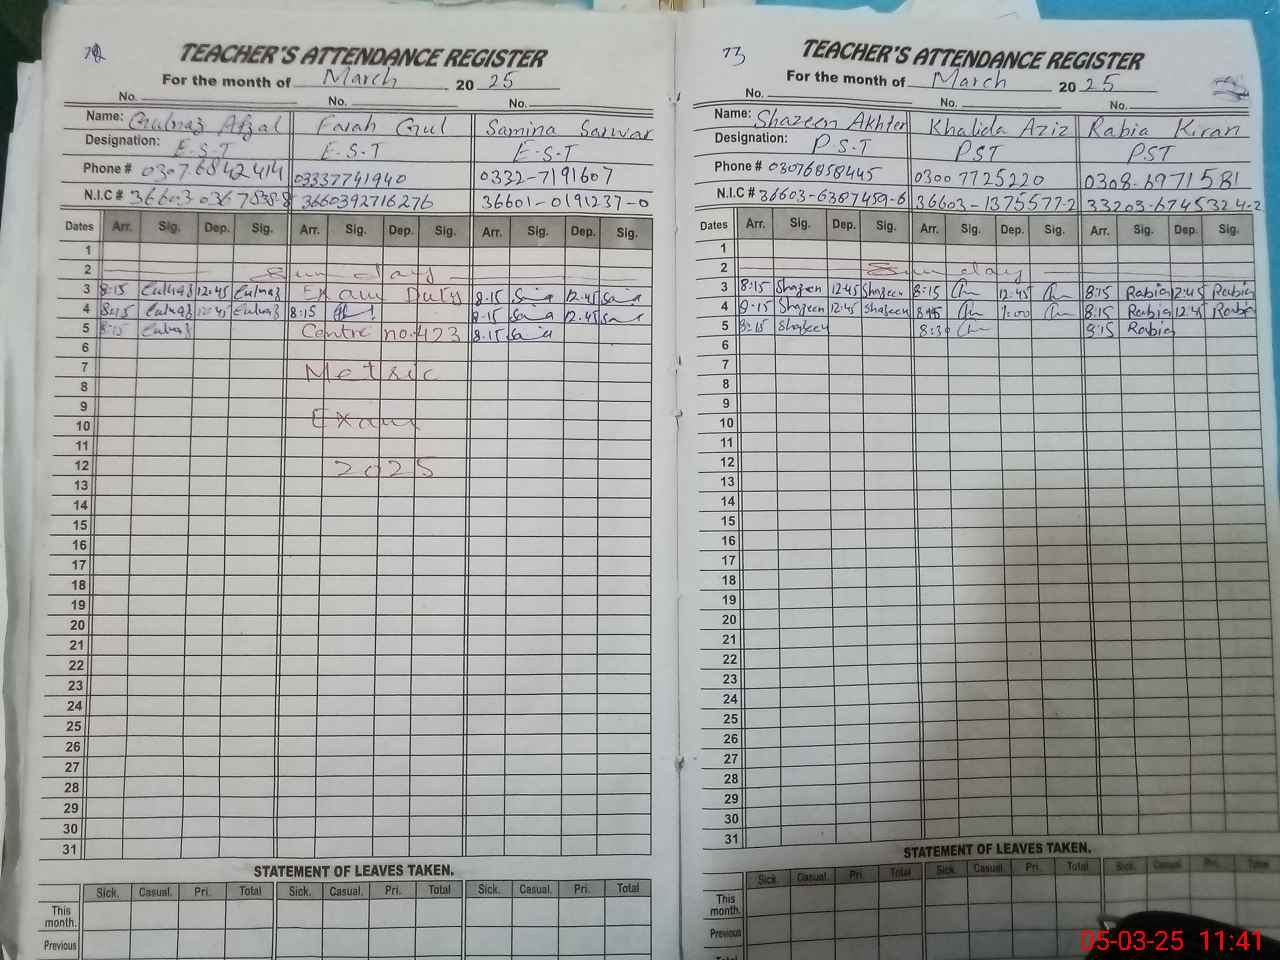 72
TEACHER'S ATTENDANCE REGISTER
For the month of March 20 25
No. No. No.
Name: Gulnaz Afzal Farah Gul Samina Sarwar
Designation: E.S.T E.S.T E.S.T
Phone # 03076842414 03337741940 0332-7191607
N.I.C # 3660392716276 36601-0191237-0
Dates Arr. Sig. Dep. Sig. Arr. Sig. Dep. Sig. Arr. Sig. Dep. Sig.
1
2 Sunday
3 8:15 Gulnaz 12:45 Gulnaz Exam Duty 8:15 12:45
4 8:15 Gulnaz 12:45 Gulnaz 8:15 8:15 12:45
5 8:15 Gulnaz Centre no.423 8:15
6
7 Metric
8
9
10 Exam
11
12 2025
13
14
15
16
17
18
19
20
21
22
23
24
25
26
27
28
29
30
31
STATEMENT OF LEAVES TAKEN.
Sick. Casual. Pri. Total Sick. Casual. Pri. Total Sick. Casual. Pri. Total
This month.
Previous
73
TEACHER'S ATTENDANCE REGISTER
For the month of March 20 25
No. No. No.
Name: Shazeen Akhter Khalida Aziz Rabia Kiran
Designation: P.S.T PST PST
Phone # 03076858445 03007725220 0308-6971581
N.I.C # 36603-6387459-6 36603-1375577-2 33203-6745324-2
Dates Arr. Sig. Dep. Sig. Arr. Sig. Dep. Sig. Arr. Sig. Dep. Sig.
1
2 Sunday
3 8:15 Shazeen 12:45 Shazeen 8:15 12:45 8:15 Rabia 12:45 Rabia
4 8:15 Shazeen 12:45 Shazeen 8:15 1:00 8:15 Rabia 12:45 Rabia
5 8:15 Shazeen 8:30 8:15 Rabia
6
7
8
9
10
11
12
13
14
15
16
17
18
19
20
21
22
23
24
25
26
27
28
29
30
31
STATEMENT OF LEAVES TAKEN.
Sick. Casual. Pri. Total Sick. Casual. Pri. Total Sick. Casual. Pri. Total
This month.
Previous
Total
05-03-25 11:41